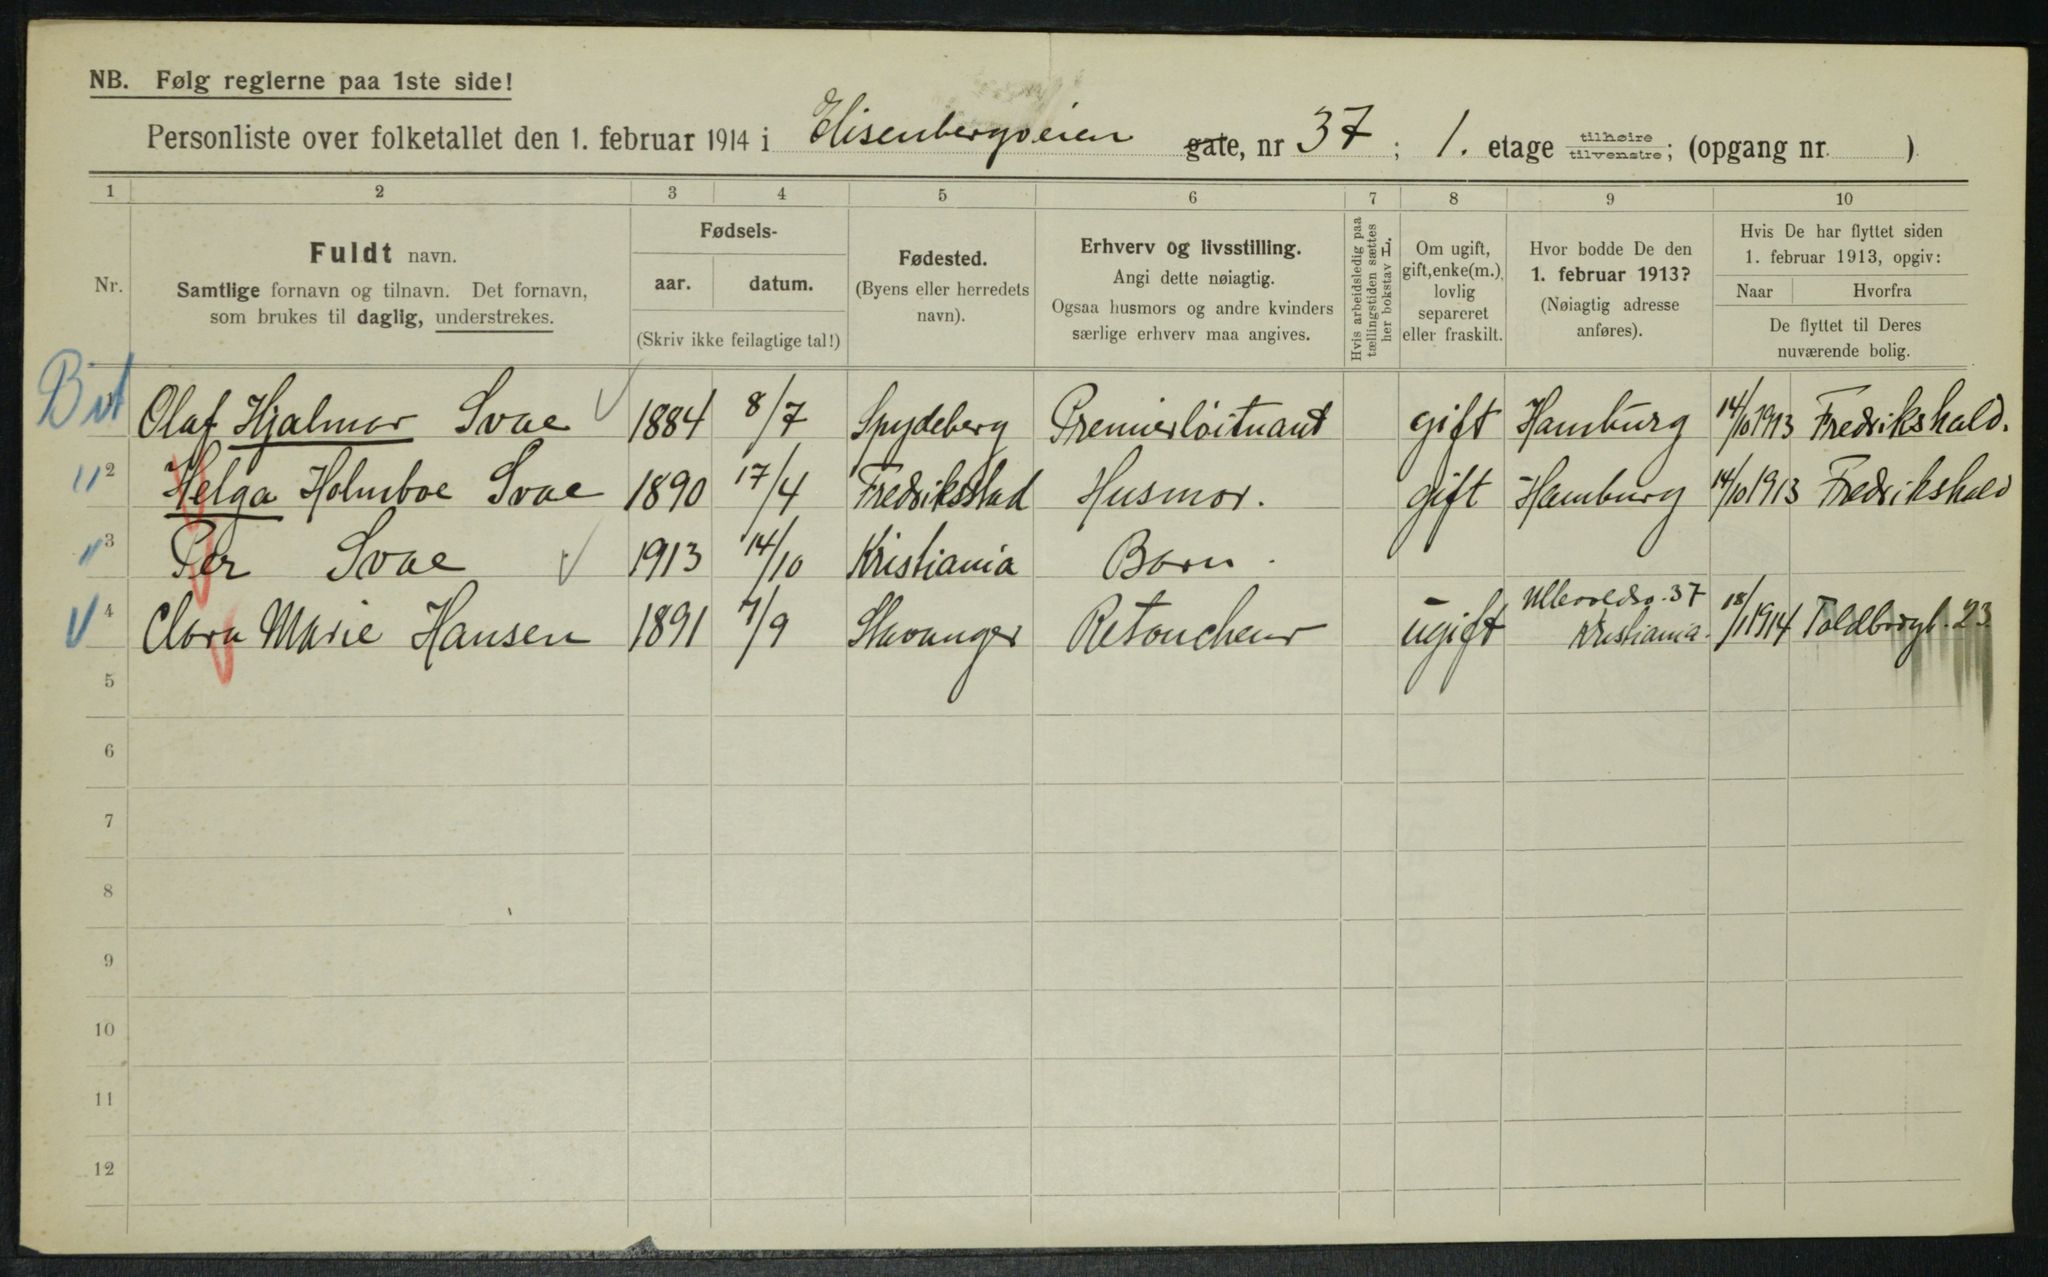 NB. Følg reglerne paa 1ste side!
Personliste over folketallet den 1. februar 1914 i Elisenbergveien gate, nr 37; 1. etage tilhøire tilvenstre; (opgang nr. )
1 2 3 4 5 6 7 8 9 10
Nr.
Fuldt navn.
Samtlige fornavn og tilnavn. Det fornavn,
som brukes til daglig, understrekes.
Fødsels-
aar. datum.
(Skriv ikke feilagtige tal!)
Fødested.
(Byens eller herredets
navn).
Erhverv og livsstilling.
Angi dette nøiagtig.
Ogsaa husmors og andre kvinders
særlige erhverv maa angives.
Hvis arbeidsledig paa
tællingstiden sættes
her bokstav L.
Om ugift,
gift, enke(m.),
lovlig
separeret
eller fraskilt.
Hvor bodde De den
1. februar 1913?
(Nøiagtig adresse
anføres).
Hvis De har flyttet siden
1. februar 1913, opgiv:
Naar Hvorfra
De flyttet til Deres
nuværende bolig.
Olaf Hjalmar Svae 1884 8/7 Spydeberg Premierløitnant gift Hamburg 14/10 1913 Fredrikshald.
2 Helga Holmboe Svae 1890 17/4 Fredriksstad Husmor. gift Hamburg 14/10 1913 Fredrikshald
3 Per Svae 1913 14/10 Kristiania Barn.
4 Clara Marie Hansen 1891 7/9 Stavanger Retoucheur ugift Ullevoldsv. 37 Kristiania. 18/1 1914 Toldbodgt. 23
5
6
7
8
9
10
11
12